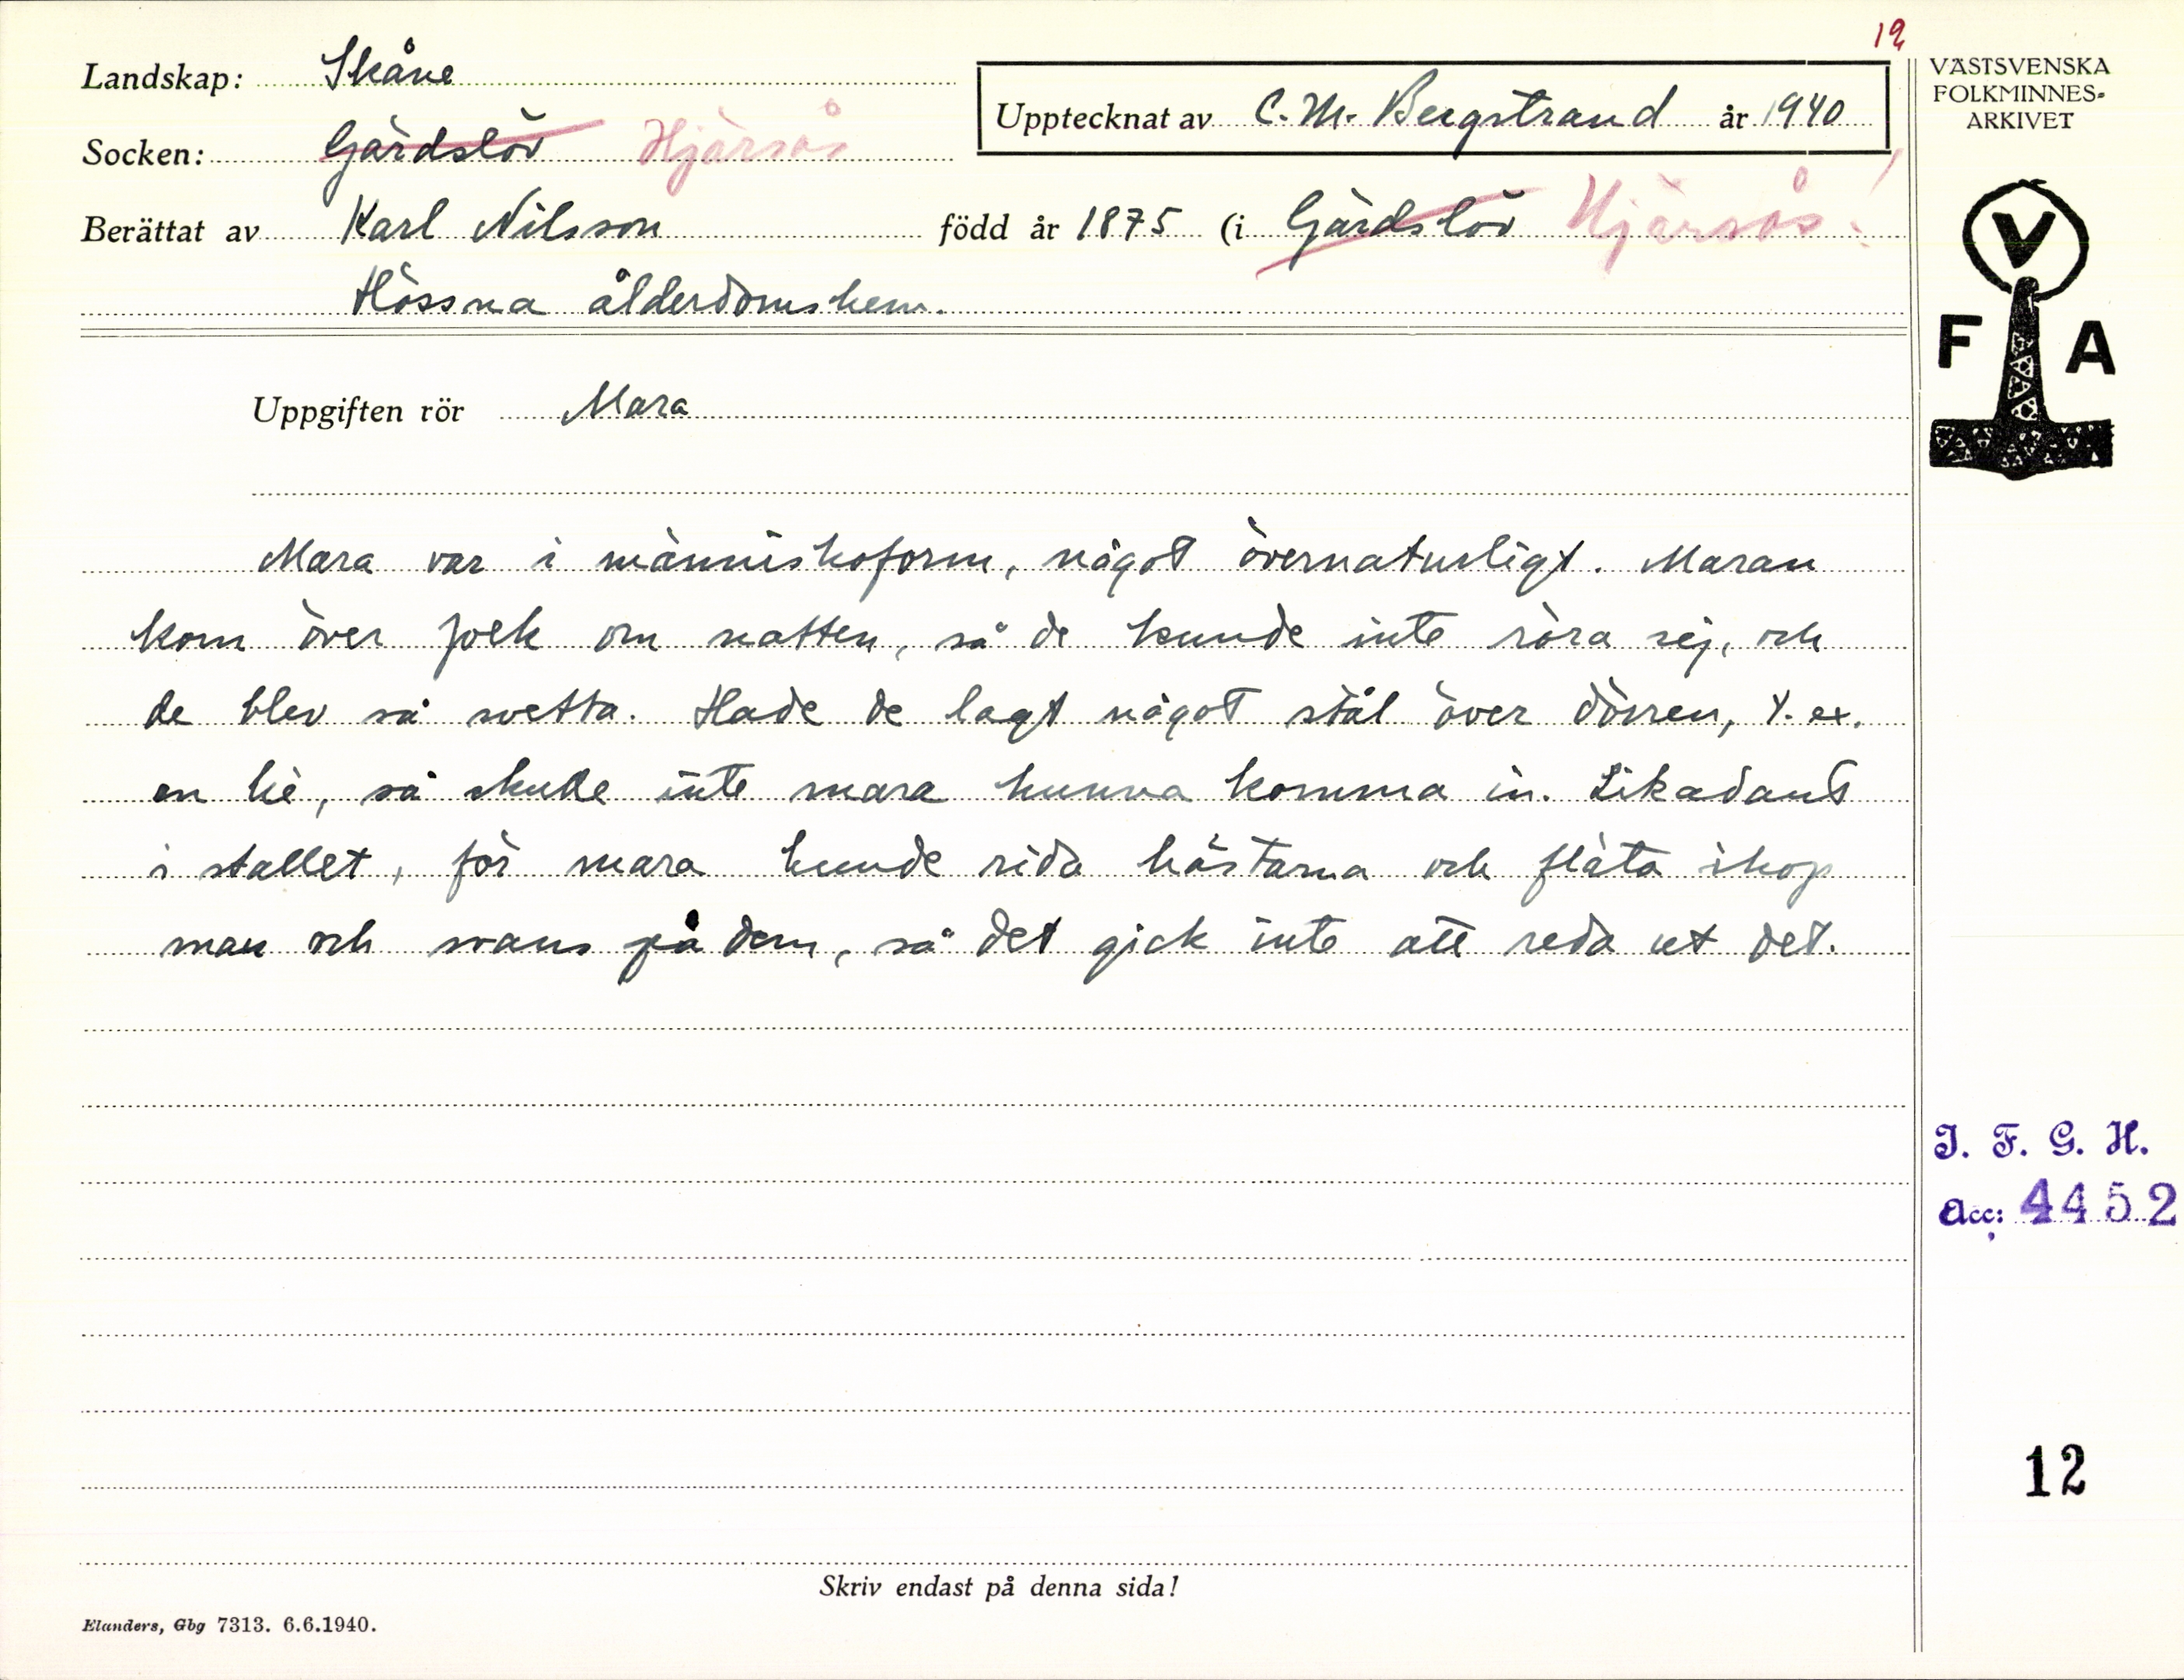 12
Landskap: Skåne
Upptecknat av C. M. Bergstrand år 1940
Socken: Gärdslöv Hjärsås
Berättat av Karl Nilsson född år 1875 (i Gärdslöv Hjärsås!
Hössna ålderdomshem.
Uppgiften rör Mara
Mara var i människoform, något övernaturligt. Maran
kom över folk om natten, så de kunde inte röra sej, och
de blev så svetta. Hade de lagt något stål över dörren, t. ex.
en lie, så skulle inte mara kunna komma in. Likadant
i stallet, för mara kunde rida hästarna och fläta ihop
man och svans på dem, så det gick inte att reda ut det.
Skriv endast på denna sida!
Elanders, Gbg 7313. 6.6.1940.
VÄSTSVENSKA
FOLKMINNES-
ARKIVET
V
F A
I. F. G. H.
Acc: 4452
12